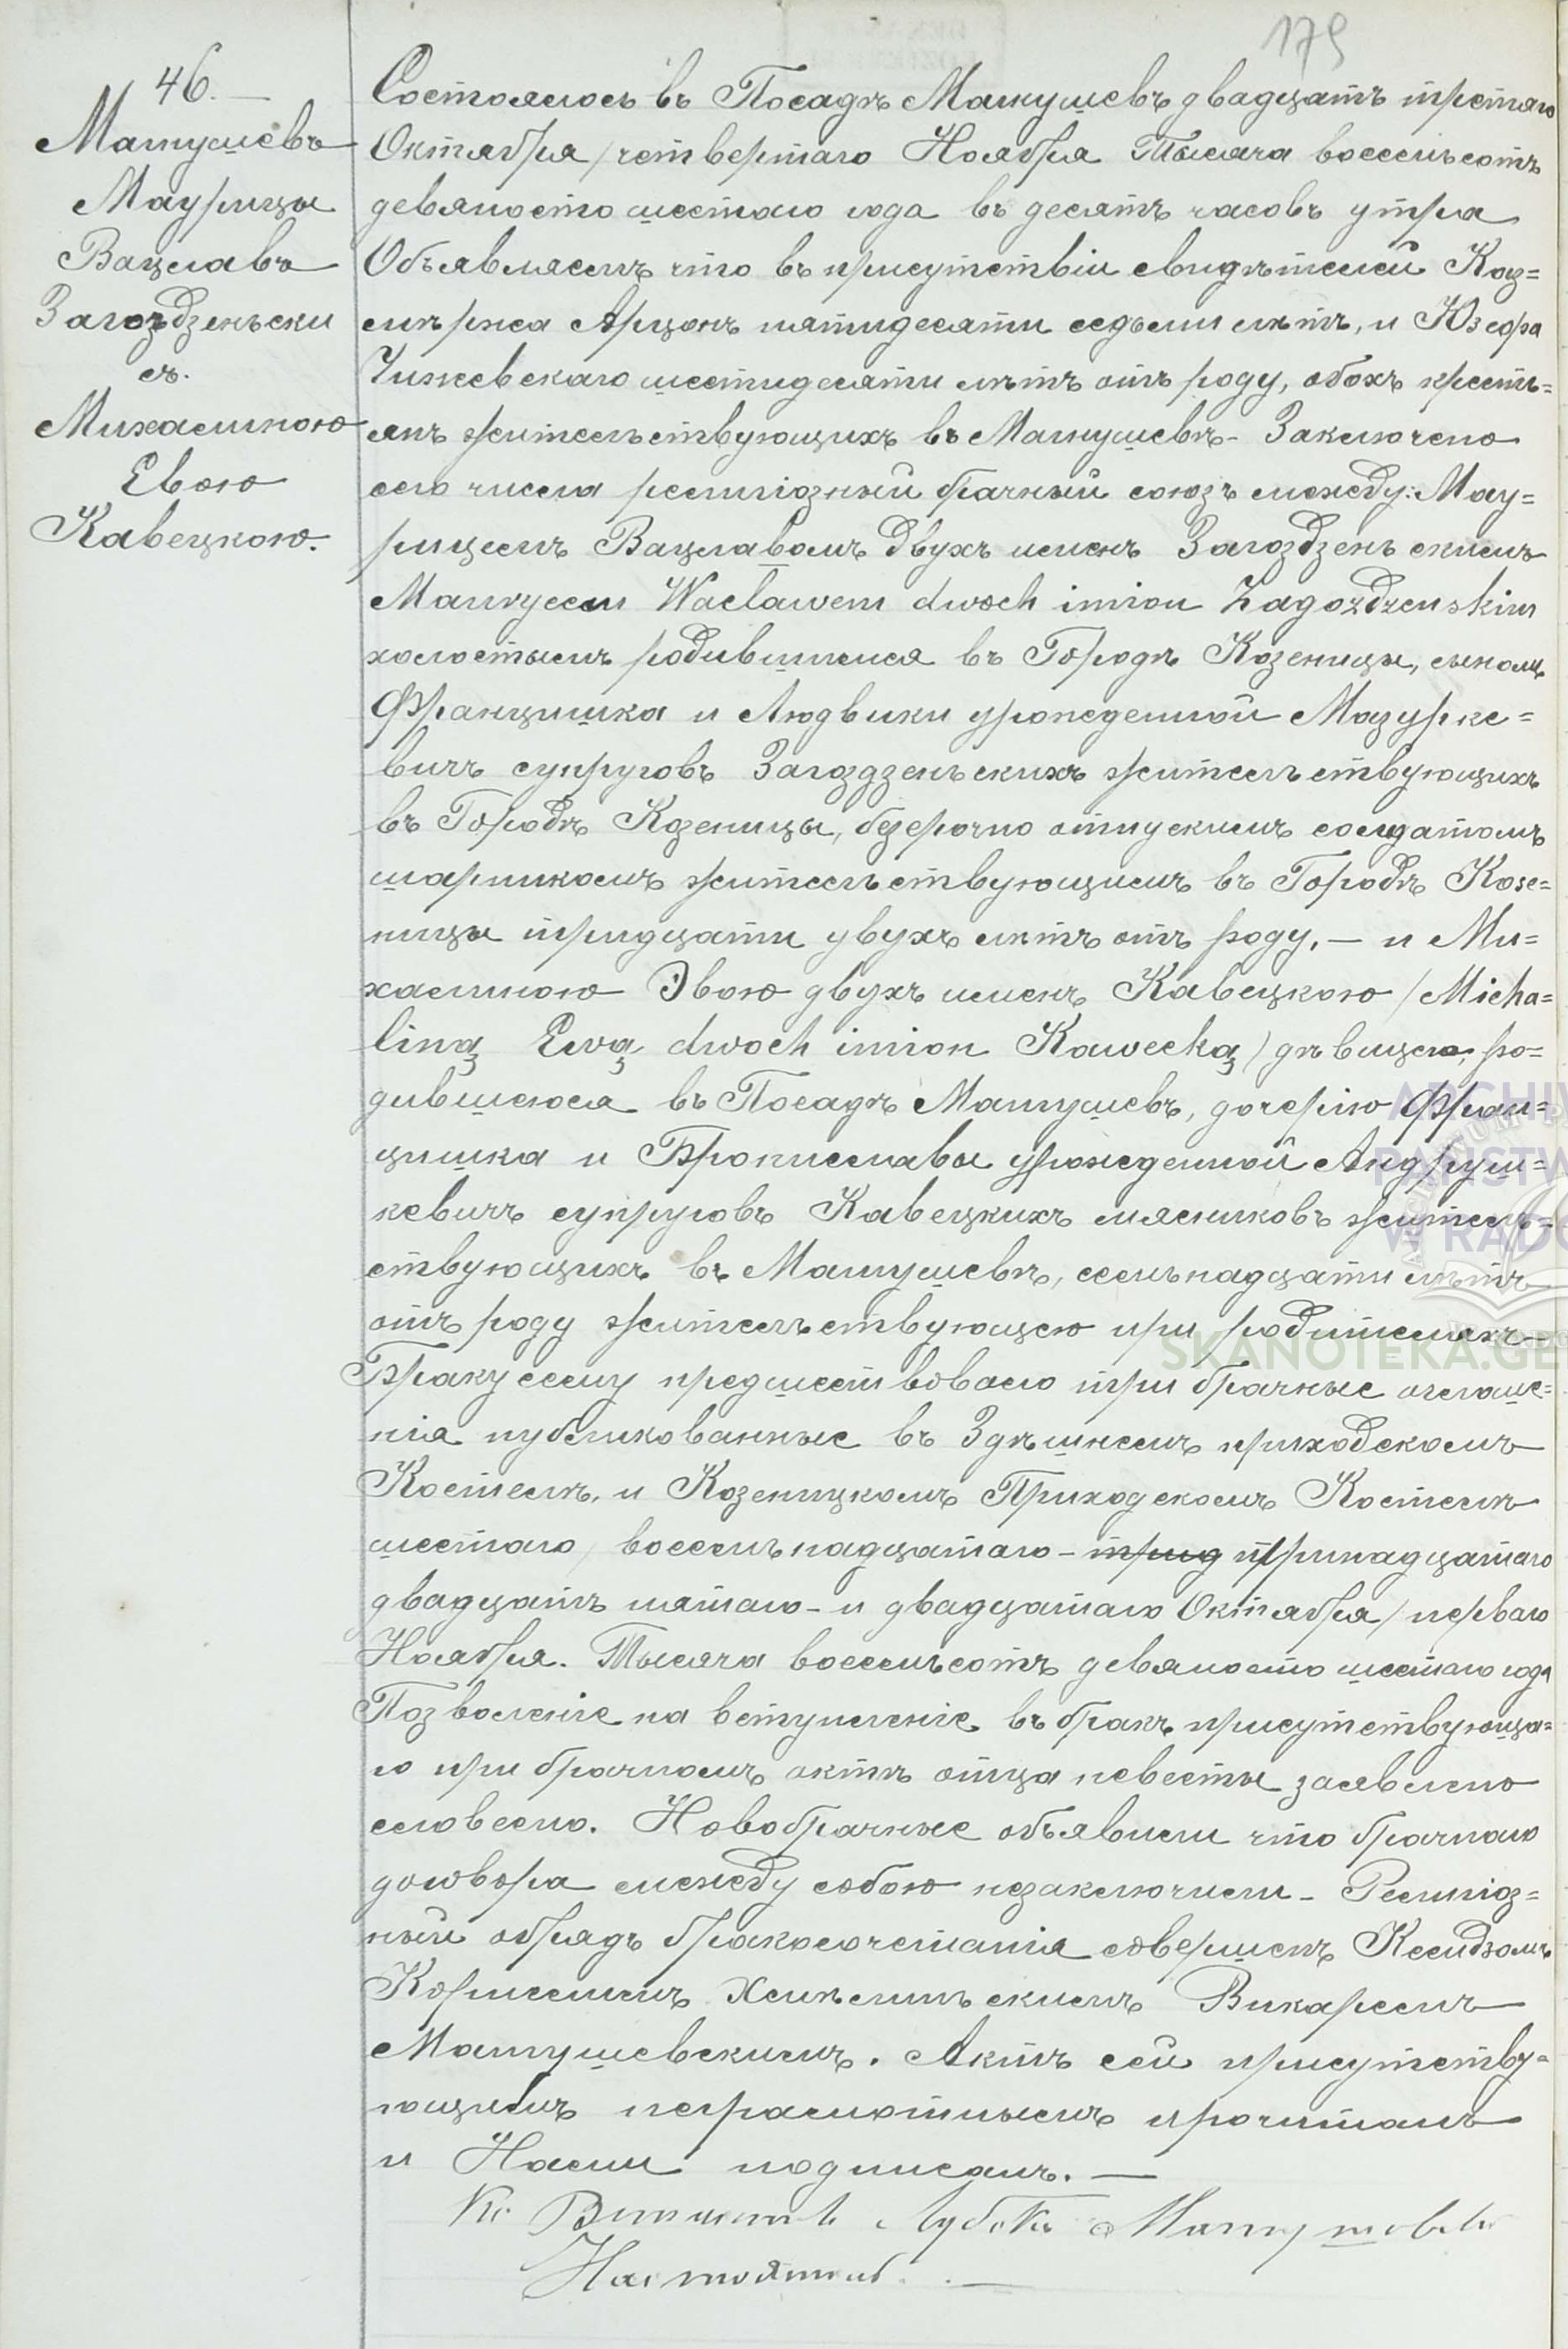 175
46.
Магнушевъ
Маурицы
Вацлавъ
Загоздзеньски
съ
Михалиною
Евою
Кавецкою.
Состоялось въ Посадѣ Магнушевъ двадцать третяго
Октября / четвертаго Ноября Тысяча восемьсотъ
девяносто шестаго года въ десять часовъ утра
Объявляемъ что въ присутствіи свидѣтелей Каз=
имѣржа Арцонъ пятидесяти седьми лѣтъ, и Юзефа
Чижевскаго шестидесяти лѣтъ отъ роду, обохъ кресть=
янъ жительствующихъ въ Магнушевѣ - Заключено
сего числа религіозный брачный союзъ между: Мау=
рицемъ Вацлавомъ двухъ именъ Загоздзеньскимъ
Maurycem Wacławem dwoch imion Zagozdzenskim
холостымъ родившимся въ Городѣ Козеницы, сыномъ
Францишка и Людвики урожденной Мазурке=
вичъ супруговъ Загоздзеньскихъ жительствующихъ
въ Городѣ Козеницы, безсрочно отпускимъ солдатомъ
жительствующимъ въ Городѣ Козе=
ницы тридцати двухъ лѣтъ отъ роду, — и Ми=
халиною Эвою двухъ именъ Кавецкою / Micha=
liną Ewą dwoch imion Kawecką) дѣвицею, ро=
дившеюся въ Посадѣ Магнушевъ, дочерью Фран=
цишка и Брониславы урожденной Андруш=
кевичъ супруговъ Кавецкихъ мясниковъ житель=
ствующихъ въ Магнушевѣ, семьнадцати лѣтъ
отъ роду жительствующею при родителяхъ —
Браку сему предшествовало три брачные оглаше=
нія публикованные въ Здѣшнемъ приходскомъ
Костелѣ, и Козеницкомъ Приходскомъ Костелѣ
шестаго / восемьнадцатаго - тринадцатаго
двадцать пятаго - и двадцатаго Октября / перваго
Ноября. Тысяча восемьсотъ девяносто шестаго года
Позволеніе на вступленіе въ бракъ присутствующа=
го при брачномъ актѣ отца невесты заявлено
словесно. Новобрачные объявили что брачнаго
договора между собою незаключили - Религіоз=
ный обрядъ бракосочетанія совершенъ Ксендзомъ
Корнелимъ Хмѣлиньскимъ Викаремъ
Магнушевскимъ. Актъ сей присутству=
ющимъ неграмотнымъ прочитанъ
и Нами подписанъ. —
Кс. Магнушевскій
Настоятель. —
ARCHIWUM
PAŃSTWOWE
W RADO
SKANOTEKA.GE